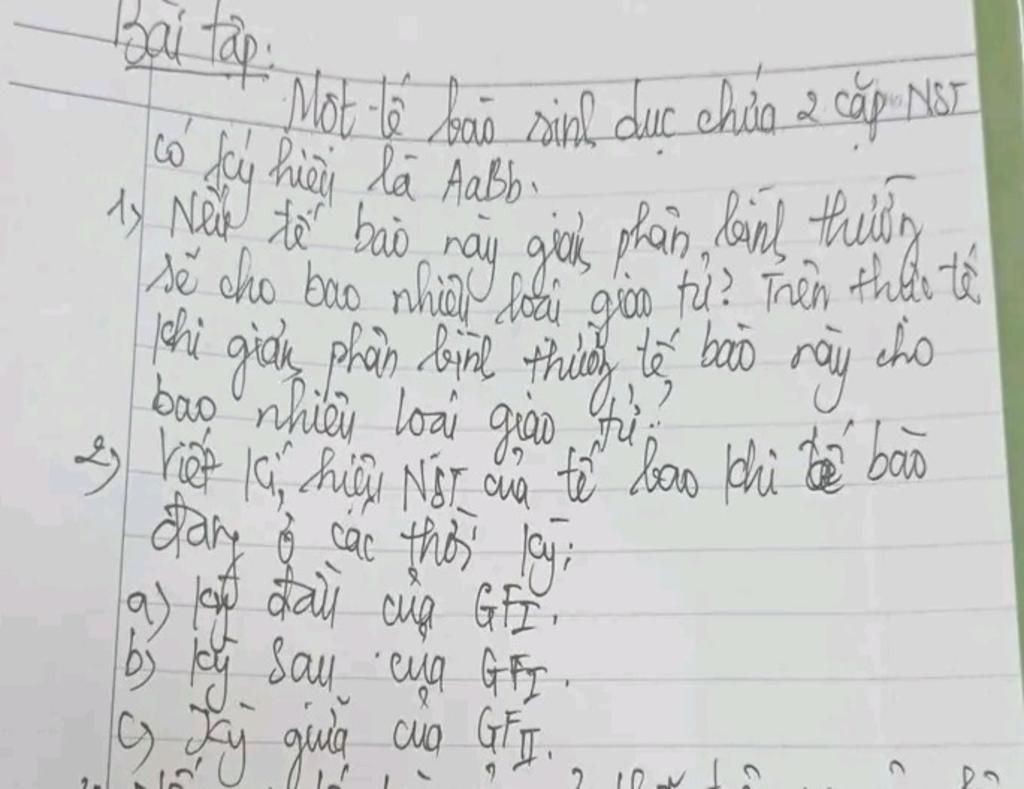 Bài tập:
Một tế bào sinh dục chứa 2 cặp NST
có ký hiệu là AaBb.
1) Nếu tế bào này giảm phân bình thường
sẽ cho bao nhiêu loại giao tử? Trên thực tế
khi giảm phân bình thường tế bào này cho
bao nhiêu loại giao tử?
2) Viết kí hiệu NST của tế bào khi tế bào
đang ở các thời kỳ:
a) Kỳ đầu của GFI.
b) Kỳ sau của GFI.
c) Kỳ giữa của GFII.